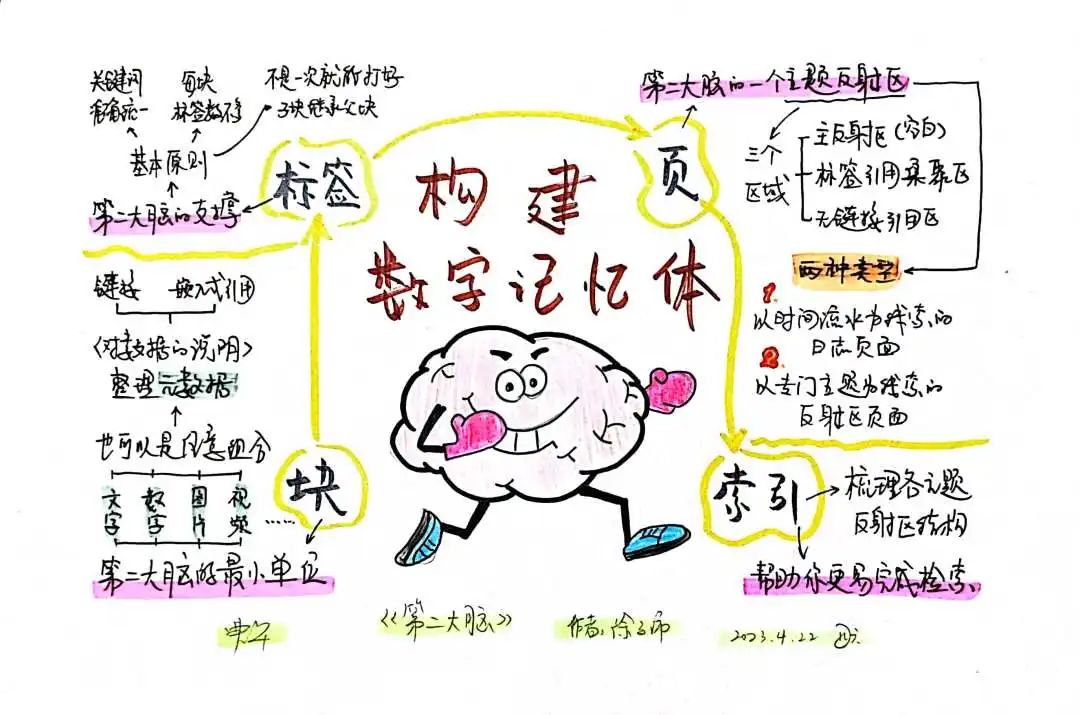 构建
数字记忆体
标签
关键词 每块 不是一次就能打好
标签数不 子块继承父块
基本原则
第二大脑的支撑
链接 嵌入式引用
《对数据的说明》
整理元数据
也可以是任意组分
文字 数字 图片 视频 ……
块
第二大脑的最小单位
页
第二大脑的一个主题反射区
三个
区域
主反射区(空白)
标签引用聚集区
无链接引用区
两种类型
1.
以时间流水为线索的
日志页面
2
以专门主题为线索的
反射区页面
索引
梳理各主题
反射区结构
帮助你更易完成检索
《第二大脑》
作者:
2023.4.22